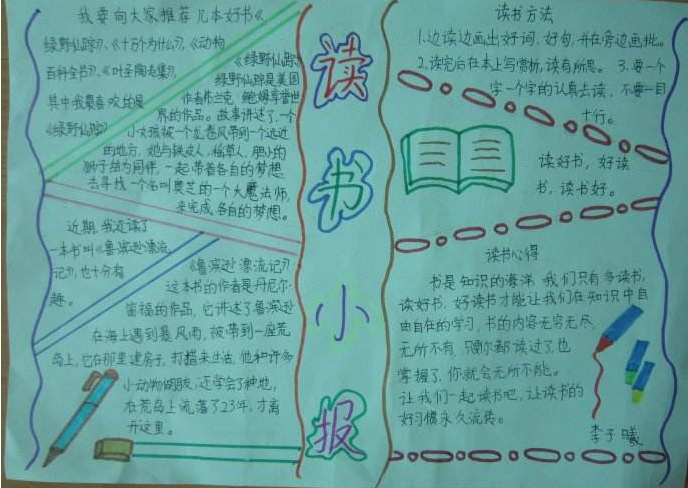 我要向大家推荐几本好书《
绿野仙踪》、《十万个为什么》、《动物
百科全书》、《叶圣陶选集》,
其中我最喜欢的是
《绿野仙踪》
《绿野仙踪》
绿野仙踪是美国
作者弗兰克·鲍姆享誉世
界的作品。故事讲述了,一个
小女孩被一个龙卷风带到一个遥远
的地方,她与铁皮人、稻草人、胆小的
狮子结为同伴,一起带着各自的梦想
去寻找一个名叫奥芝的一个大魔法师,
来完成各自的梦想。
近期,我还读了
一本书叫《鲁滨逊漂流
记》,也十分有
趣。
《鲁滨逊漂流记》
这本书的作者是丹尼尔·
笛福的作品,它讲述了鲁滨逊
在海上遇到暴风雨,被带到一座荒
岛上,它在那里建房子,打猎来生活,他和许多
小动物做朋友,还学会了种地,
在荒岛上流落了23年,才离
开这里。
读
书
小
报
读书方法
1.边读边画出好词、好句,并在旁边批。
2.读完后在本上写赏析,读有所思。 3.要一个
字一个字的认真去读,不要一目
十行。
读好书,好读
书,读书好。
读书心得
书是知识的海洋,我们只有多读书,
读好书,好读书才能让我们在知识中自
由自在的学习,书的内容无穷无尽,
无所不有,只要你都读过了,也
掌握了,你就会无所不能。
让我们一起读书吧,让读书的
好习惯永久流传。
李子曦